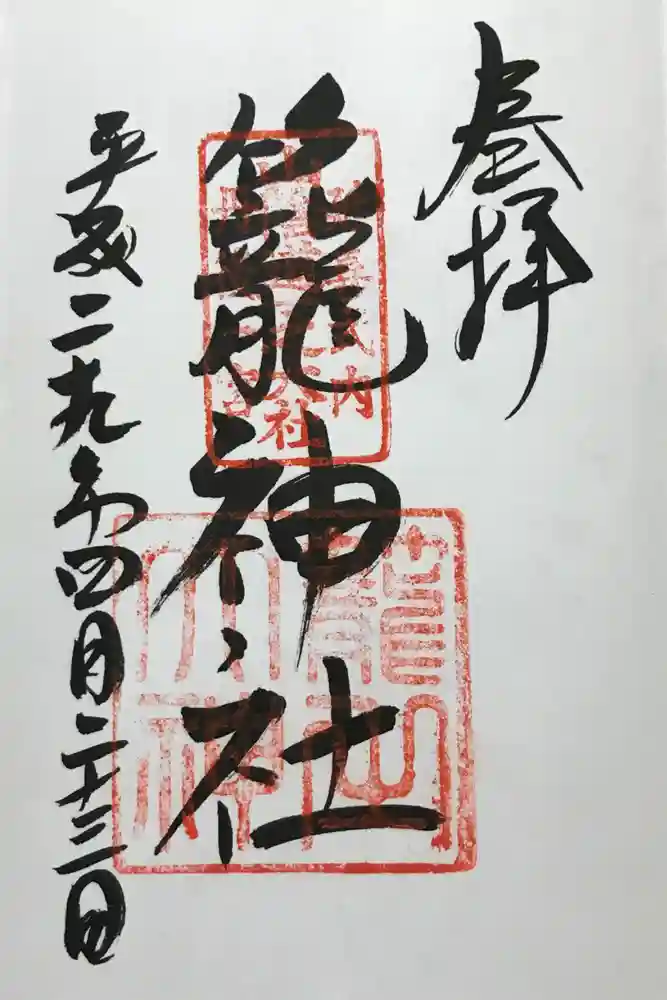 奉拝
籠神社
平成二十九年四月二十三日
式内
大社
大神